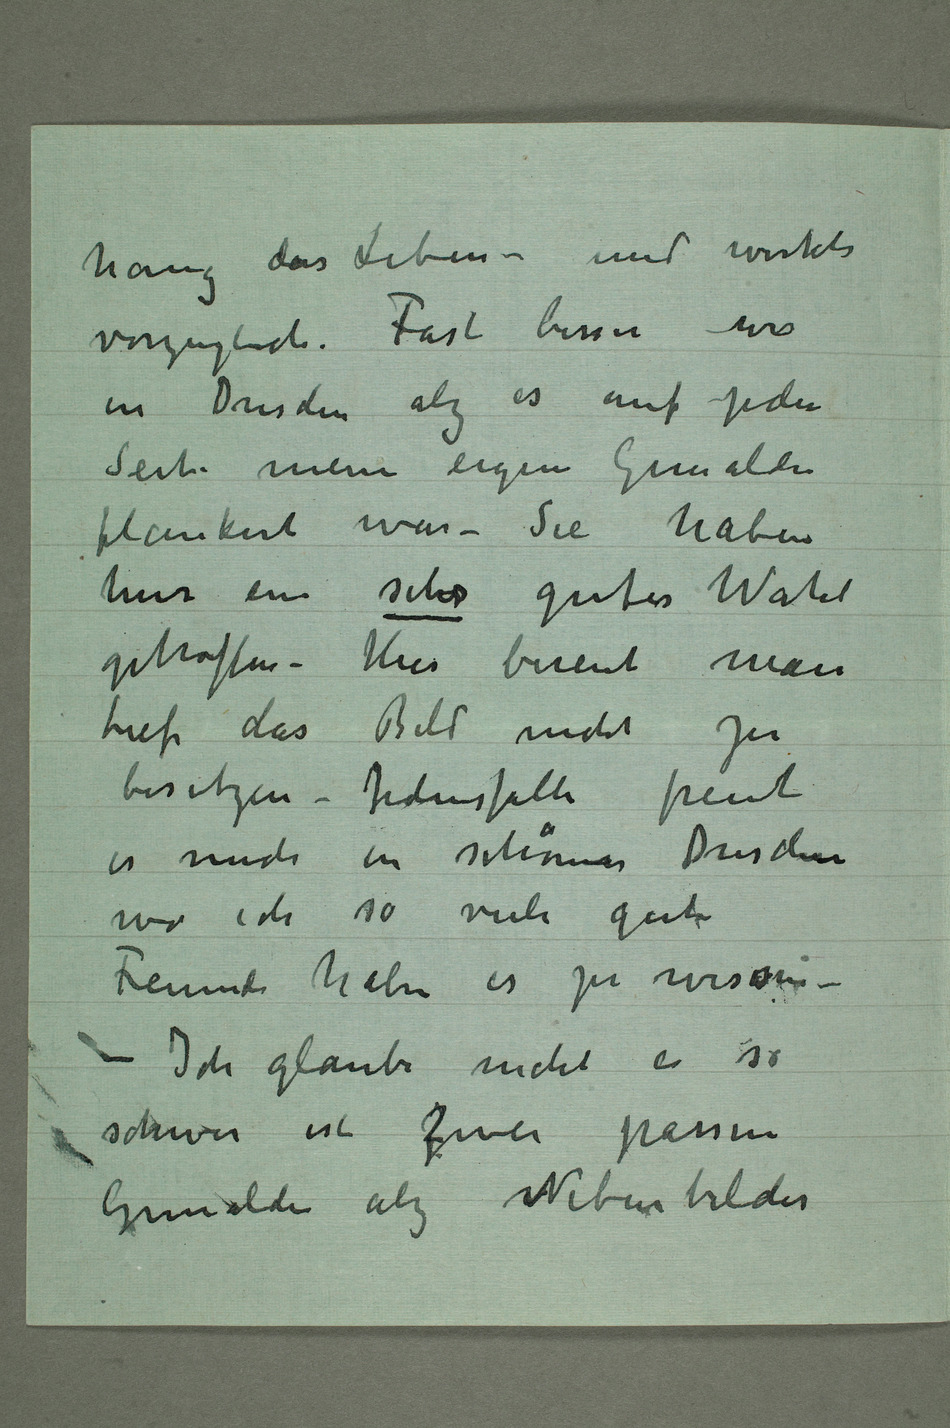 hang das Leben – und wirkte
vorzuglich. Fast besser wo
in Dresden alz es auf jeder
Seite meine eigene Gemälde
flankirt war – Sie haben
hier ein sehr gutes Wahl
getroffen – Hier bereut man
tief das Bild nicht zu
besitzen – Jedenfalls freut
es mich in schönes Dresden
wo ich so viele gute
Feunde habe es zu wissen –
– Ich glaube nicht es so
schwer ist Zwei passen
Gemälde alz Nebenbilder